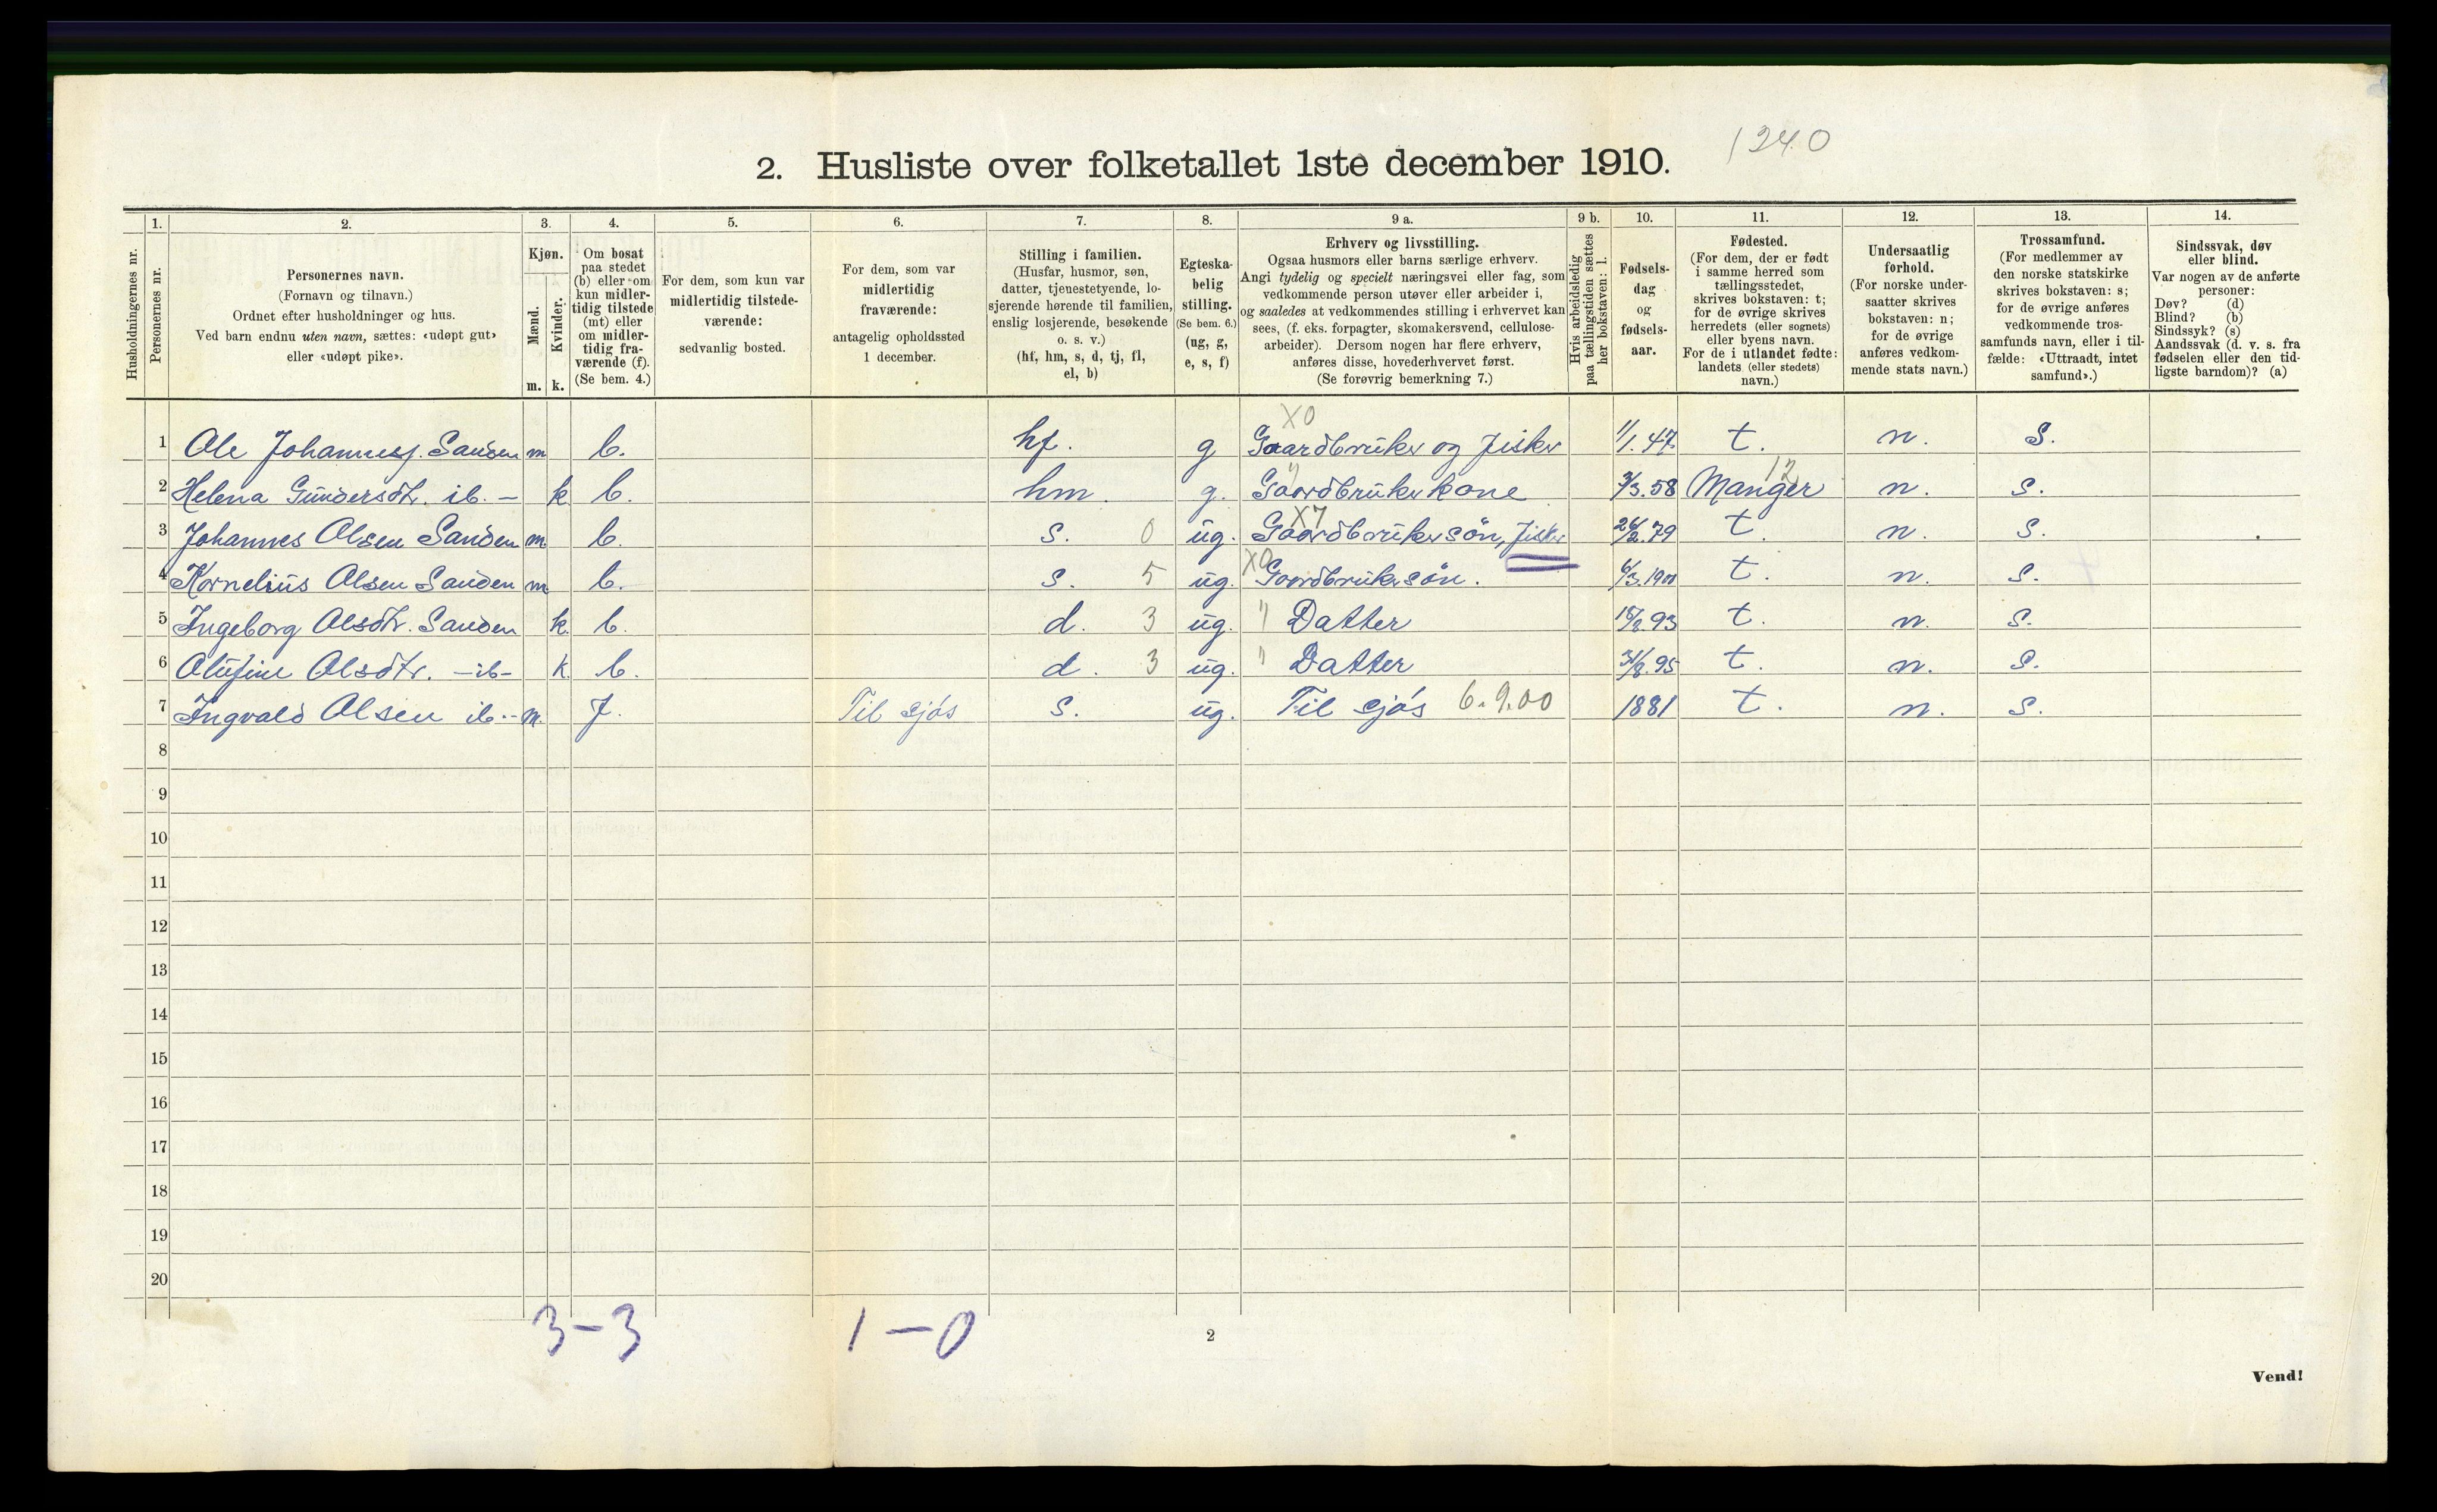 1240
2. Husliste over folketallet 1ste december 1910.
Husholdningernes nr.
1. Personernes nr.
2. Personernes navn.
(Fornavn og tilnavn.)
Ordnet efter husholdninger og hus.
Ved barn endnu uten navn, sættes: «udøpt gut»
eller «udøpt pike».
3. Kjøn.
Mænd. m.
Kvinder. k.
4. Om bosat
paa stedet
(b) eller om
kun midler-
tidig tilstede
(mt) eller
om midler-
tidig fra-
værende (f).
(Se bem. 4.)
5. For dem, som kun var
midlertidig tilstede-
værende:
sedvanlig bosted.
6. For dem, som var
midlertidig
fraværende:
antagelig opholdssted
1 december.
7. Stilling i familien.
(Husfar, husmor, søn,
datter, tjenestetyende, lo-
sjerende hørende til familien,
enslig losjerende, besøkende
o. s. v.)
(hf, hm, s, d, tj, fl,
el, b)
8. Egteska-
belig
stilling.
(Se bem. 6.)
(ug, g,
e, s, f)
9 a. Erhverv og livsstilling.
Ogsaa husmors eller barns særlige erhverv.
Angi tydelig og specielt næringsvei eller fag, som
vedkommende person utøver eller arbeider i,
og saaledes at vedkommendes stilling i erhvervet kan
sees, (f. eks. forpagter, skomakersvend, cellulose-
arbeider). Dersom nogen har flere erhverv,
anføres disse, hovederhvervet først.
(Se forøvrig bemerkning 7.)
9 b. Hvis arbeidsledig
paa tællingstiden sættes
her bokstaven: l.
10. Fødsels-
dag
og
fødsels-
aar.
11. Fødested.
(For dem, der er født
i samme herred som
tællingsstedet,
skrives bokstaven: t;
for de øvrige skrives
herredets (eller sognets)
eller byens navn.
For de i utlandet fødte:
landets (eller stedets)
navn.)
12. Undersaatlig
forhold.
(For norske under-
saatter skrives
bokstaven: n;
for de øvrige
anføres vedkom-
mende stats navn.)
13. Trossamfund.
(For medlemmer av
den norske statskirke
skrives bokstaven: s;
for de øvrige anføres
vedkommende tros-
samfunds navn, eller i til-
fælde: «Uttraadt, intet
samfund».)
14. Sindssvak, døv
eller blind.
Var nogen av de anførte
personer:
Døv? (d)
Blind? (b)
Sindssyk? (s)
Aandssvak (d. v. s. fra
fødselen eller den tid-
ligste barndom)? (a)
X0
1 Ole Johannesf. Sanden m b. hf. g Gaardbruker og fisker 1/1.47 t. n. S.
" 12
2 Helena Gundersdtr. ib. – k b. hm. g. Gaardbruker kone 3/3.58 Manger n. S.
X7
3 Johannes Olsen Sanden m b. s. 0 ug. Gaardbrukersøn, fisker 26/2.79 t. n. S.
X0
4 Kornelius Olsen Sanden m b. s. 5 ug. Gaardbrukersøn. 6/3.1900 t. n. S.
5 Ingeborg Olsdtr. Sanden k. b. d. 3 ug. " Datter 18/8.93 t. n. S.
6 Olufine Olsdtr. –ib– k. b. d. 3 ug. " Datter 31/8.95 t. n. S.
7 Ingvald Olsen ib.– m. f. Til sjøs s. ug. Til sjøs 6.9.00 1881 t. n. S.
8
9
10
11
12
13
14
15
16
17
18
19
20
3–3 1–0
2
Vend!